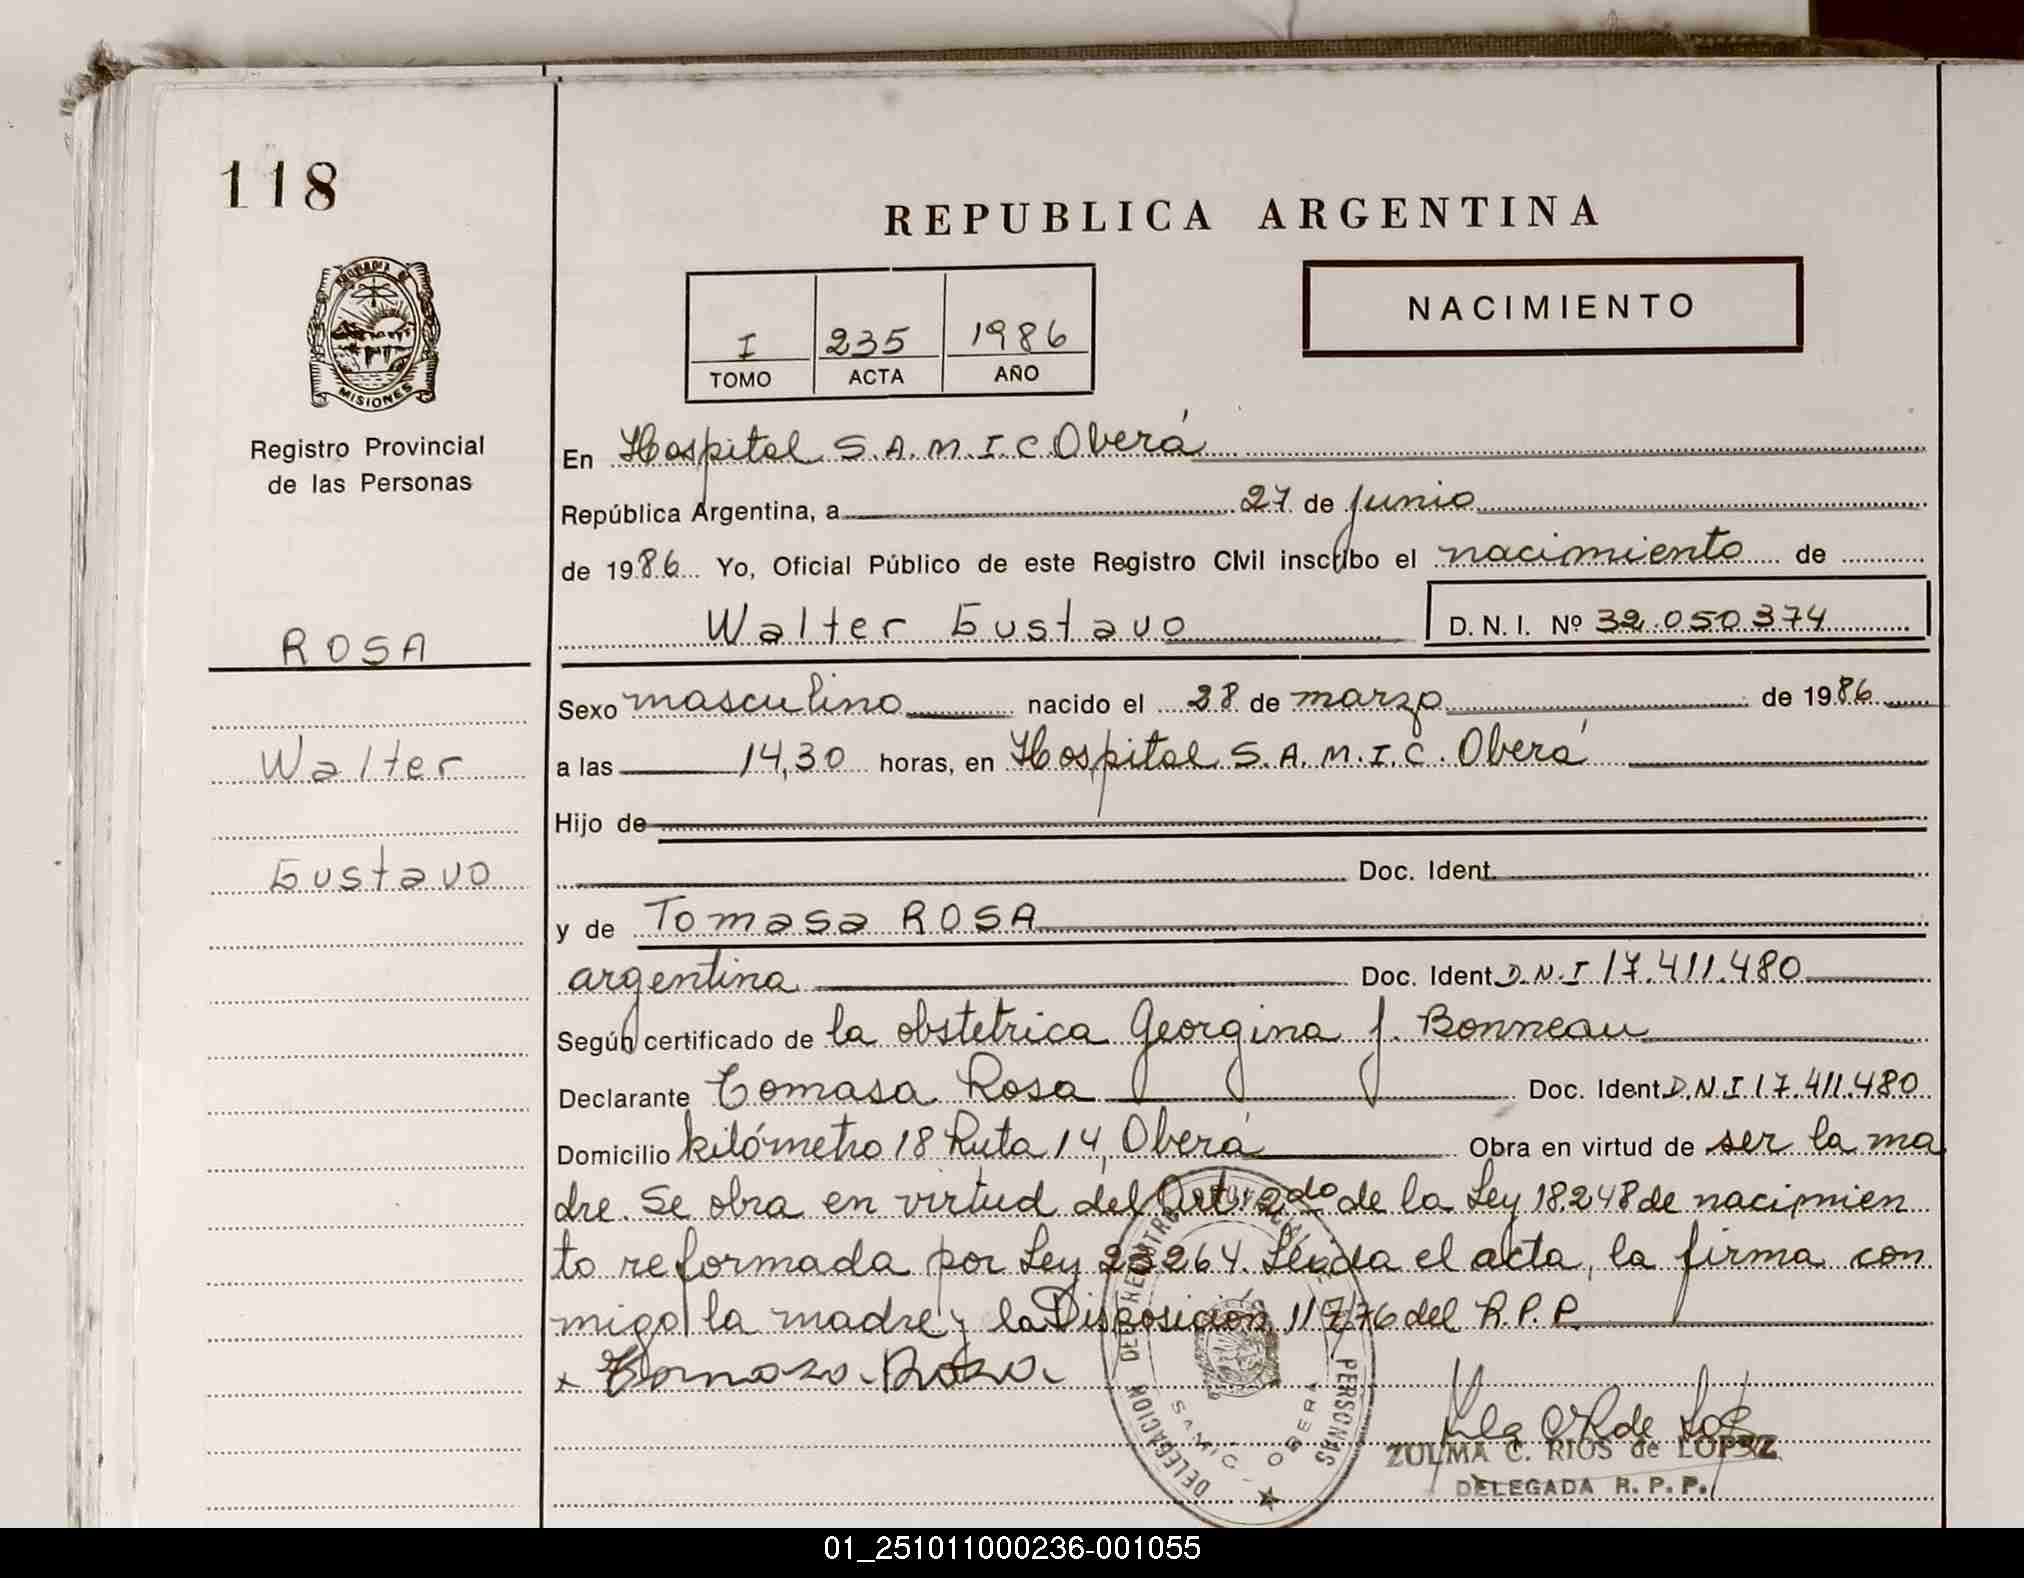 118
REPUBLICA ARGENTINA
NACIMIENTO
I 235 1986
TOMO ACTA AÑO
MISIONES
Registro Provincial
de las Personas
En Hospital S.A.M.I.C. Oberá
República Argentina, a 27 de junio
de 1986. Yo, Oficial Público de este Registro Civil inscribo el nacimiento de
Walter Gustavo D. N. I. Nº 32.050.374
ROSA
Walter
Gustavo
Sexo masculino nacido el 28 de marzo de 1986
a las 14,30 horas, en Hospital S.A.M.I.C. Oberá
Hijo de
Doc. Ident.
y de Tomasa ROSA
argentina Doc. Ident. D.N.I 17.411.480
Según certificado de la obstetrica Georgina J. Bonneau
Declarante Tomasa Rosa Doc. Ident. D.N.I 17.411.480
Domicilio kilómetro 18 Ruta 14, Oberá Obra en virtud de ser la ma
dre. Se obra en virtud del Art. 2do de la Ley 18.248 de nacimien
to reformada por Ley 23264. Leída el acta, la firma con
migo la madre y la Disposición 117/76 del R.P.P.
x Tomasa Rosa
DELEGACION DEL REGISTRO PERSONAS
SAMIC - OBERA
ZULMA C. RIOS de LOPEZ
DELEGADA R. P. P.
01_251011000236-001055